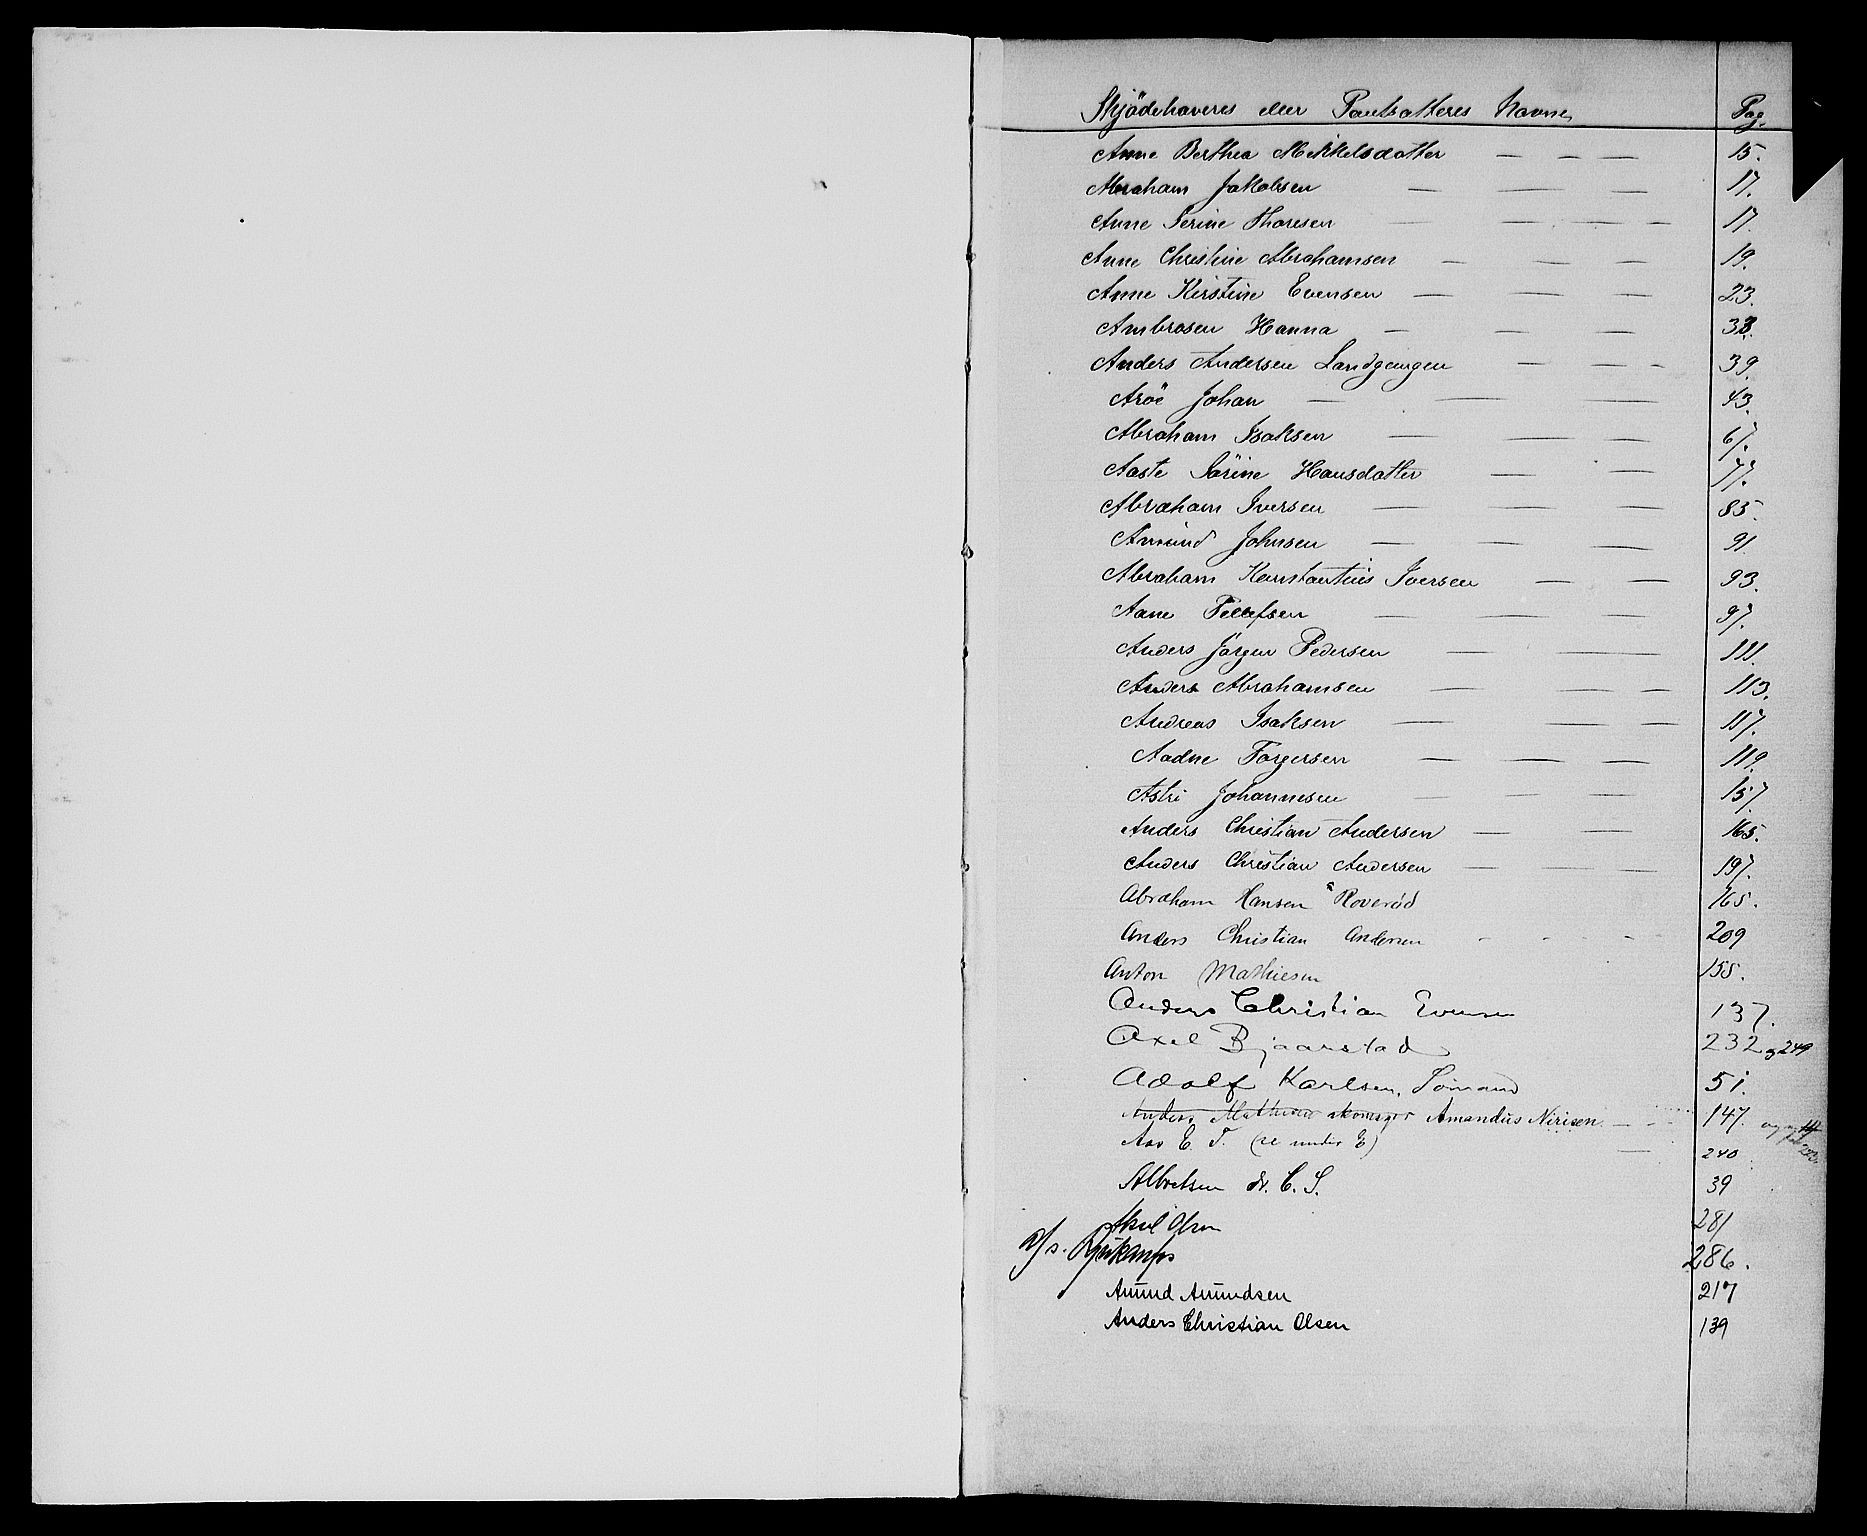 Skjödehaveres eller Pantsatteres Navne Pag.
Anne Berthea Mekkelsdatter — — — 15.
Abraham Jakobsen — — — 17.
Anne Serine Thorsen — — — 17.
Anne Christine Abrahamsen — — — 19.
Anne Kirstine Evensen — — — 23.
Ambrosen Hanna — — — 33.
Anders Andersen Landgangen — — — 39.
Aröe Johan — — — 43.
Abraham Isaksen — — — 67.
Aaste Sörine Hansdatter — — 77.
Abraham Iversen — — — 85.
Amund Johnsen — — — 91
Abraham Konstantius Iversen — — 93.
Aane Tellefsen — — — 97.
Anders Jørgen Pedersen — — 111.
Anders Abrahamsen — — — 113.
Andreas Isaksen — — — 117.
Aadne Torgersen — — — 119.
Astri Johannesen — — — 157
Anders Christian Andersen — — 165.
Anders Christian Andersen — — — 197.
Abraham Hansen Roverød 165.
Anders Christian Andersen - - - - 209
Anton Mathiesen 155.
Anders Christian Evensen 137.
Axel Bjaarstad 232 og 249
Adolf Karlsen, Sömand 51.
Anders Mathias skomager Amandus Nirisen — 147.
Aas E. T. (se under E) — 240
Albretsen dr. C. S. 39
Aksel Olsen 281
A/s. Rjukanfos 286.
Amund Amundsen 217
Anders Christian Olsen 139